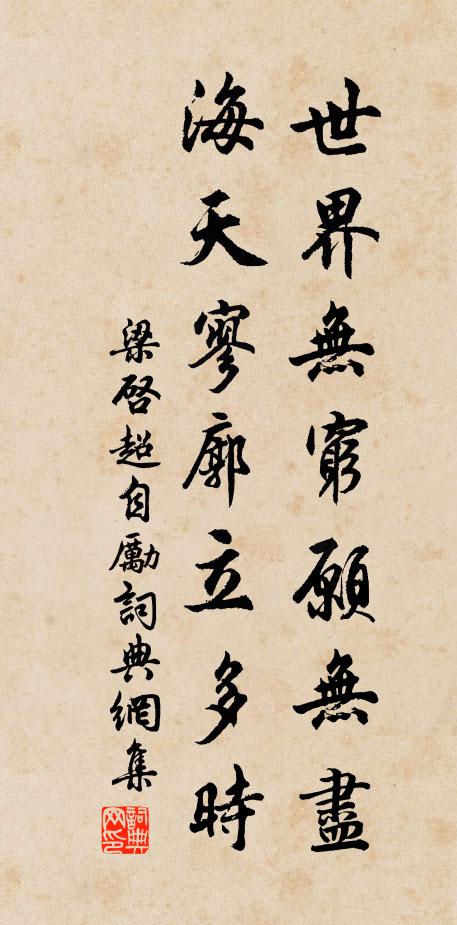 世界無窮願無盡
海天寥廓立多時
梁啓超自勵詞典網集
詞典网印